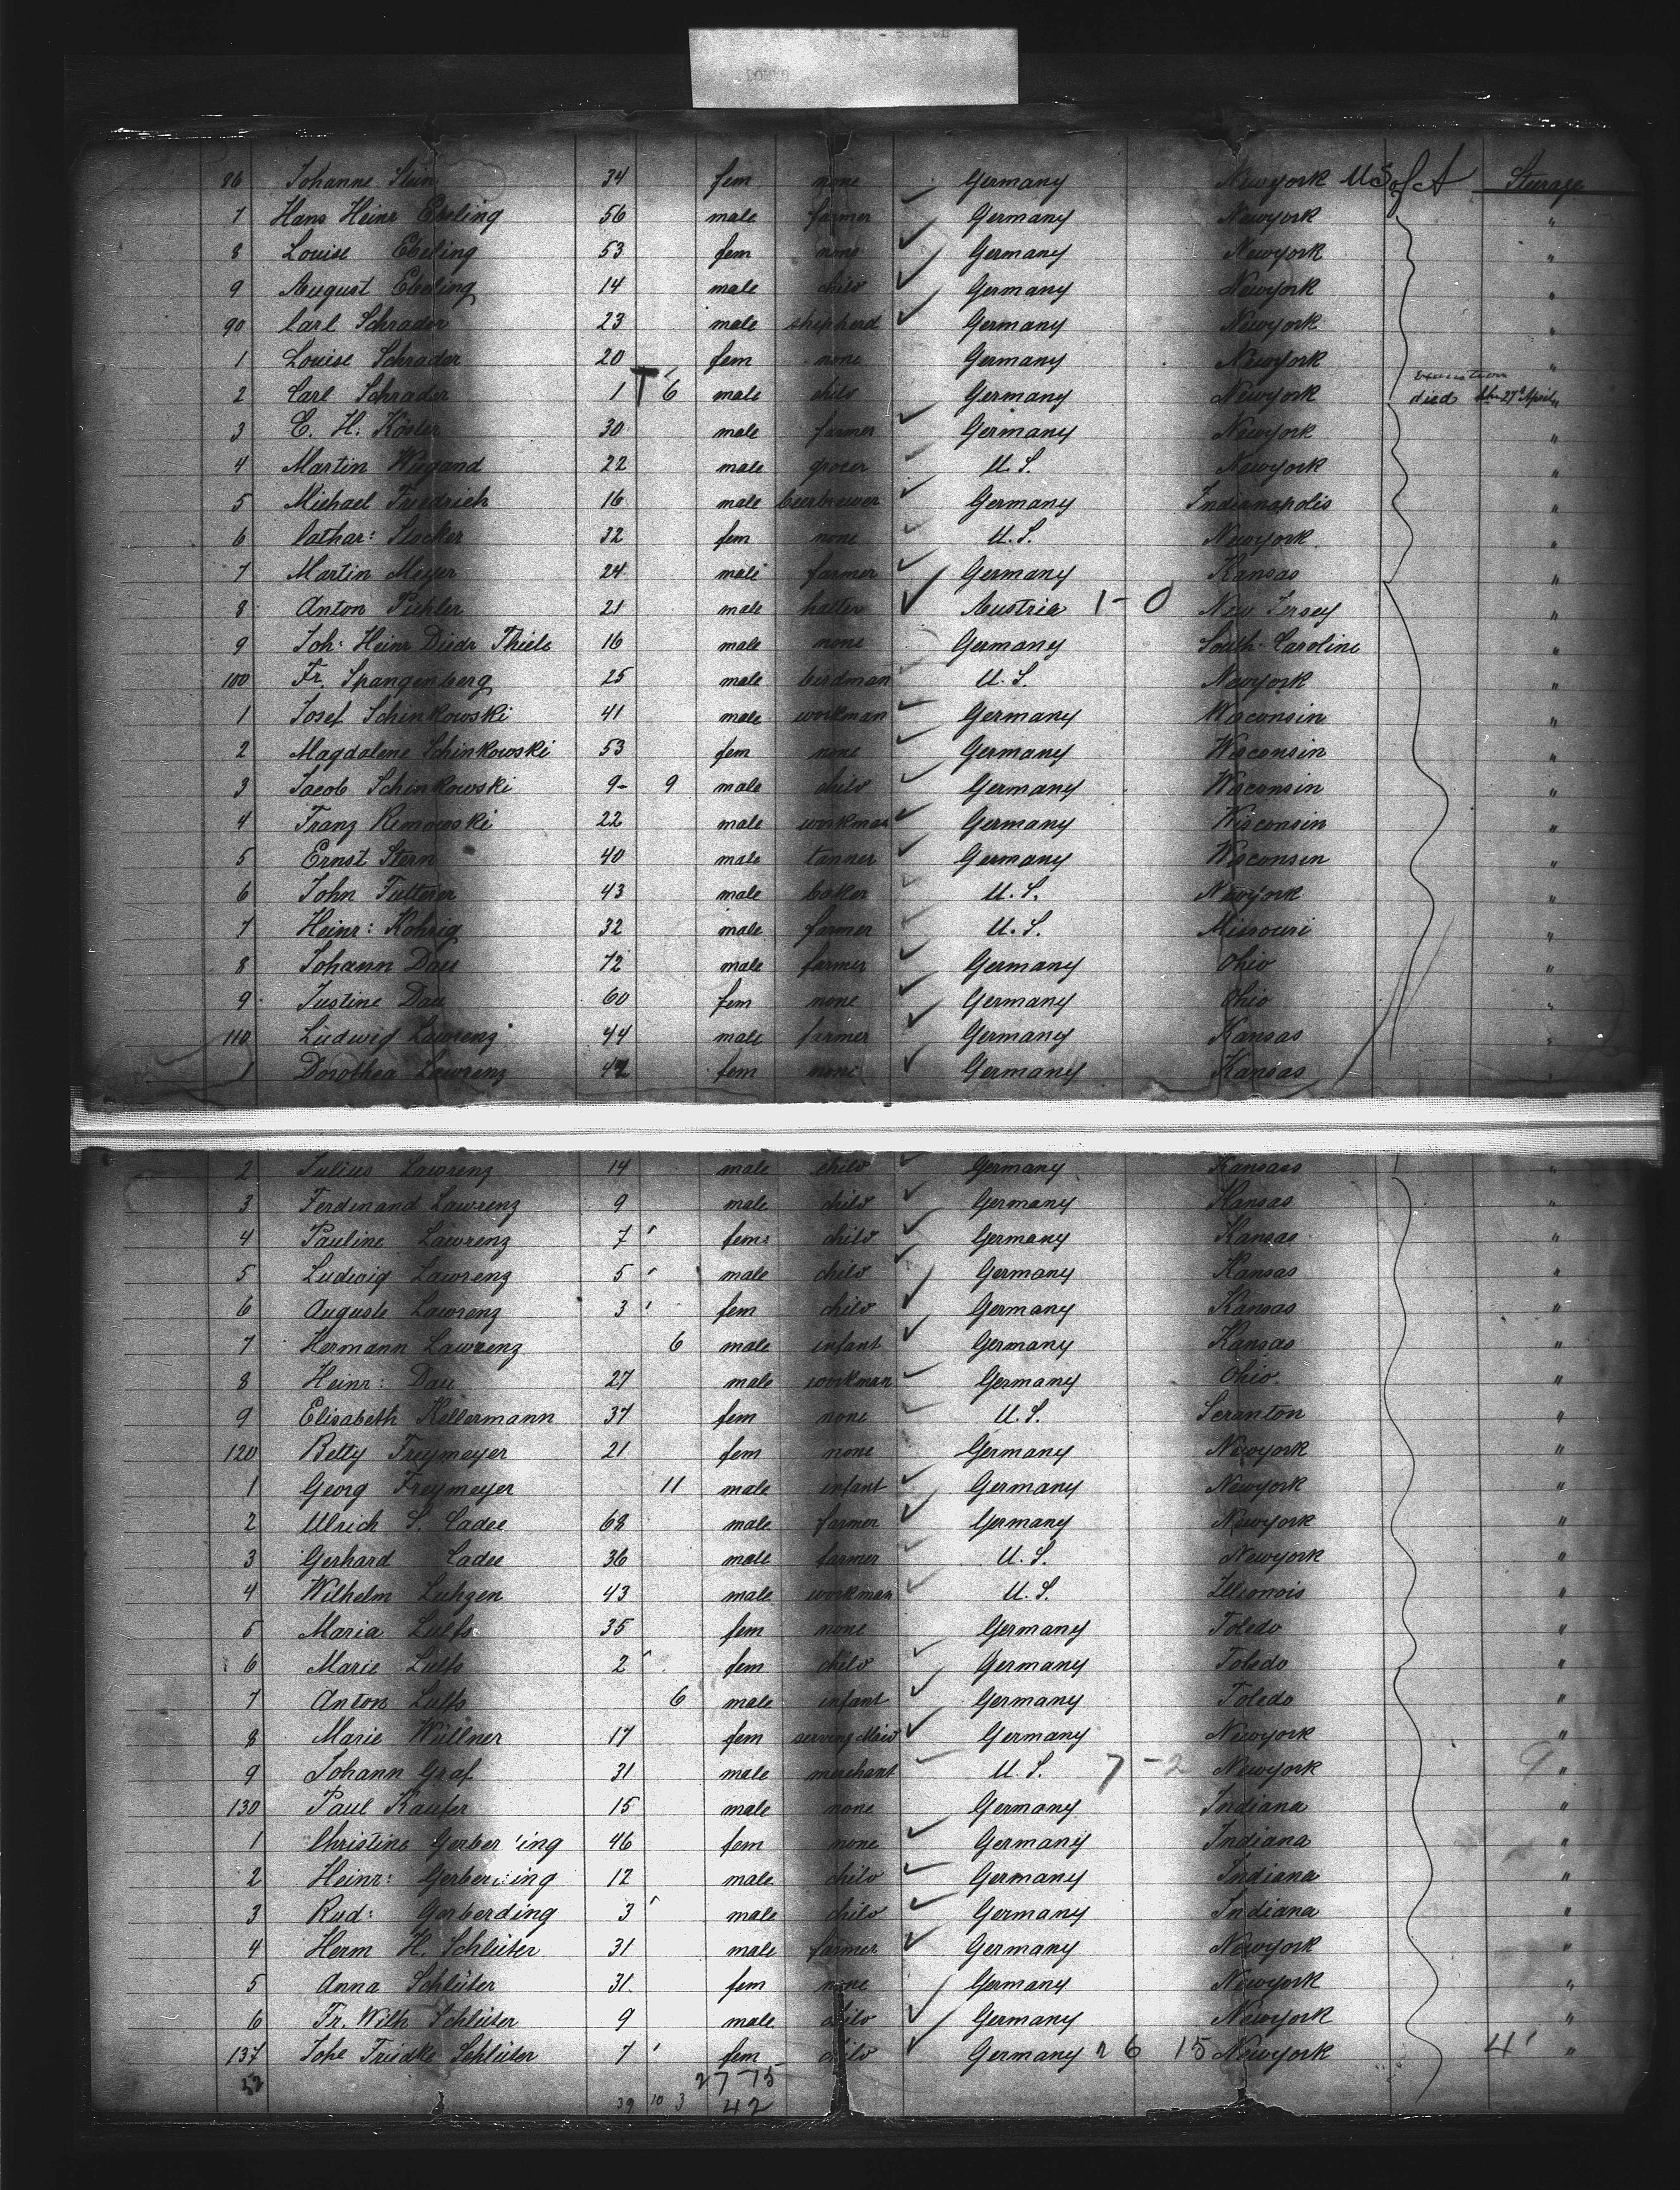 86 Johanne Stein 34 fem none Germany Newyork U S of A Steerage
7 Hans Heinr Ebeling 56 male farmer Germany Newyork "
8 Louise Ebeling 53 fem none Germany Newyork "
9 August Ebeling 14 male child Germany Newyork "
90 Carl Schrader 23 male shepherd Germany Newyork "
1 Louise Schrader 20 fem none Germany Newyork "
2 Carl Schrader 1 6 male child Germany Newyork died 27 April "
3 C. H. Köster 30 male farmer Germany Newyork "
4 Martin Wiegand 22 male grocer U. S. Newyork "
5 Michael Friedrich 16 male beerbrewer Germany Indianapolis "
6 Cathar: Stocker 32 fem none U. S. Newyork "
7 Martin Meyer 24 male farmer Germany Kansas "
8 Anton Pichler 21 male hatter Austria 1-0 New Jersey "
9 Joh: Heinr Diedr Thiele 16 male none Germany South Caroline "
100 Fr. Spangenberg 25 male birdman U. S. Newyork "
1 Josef Schinkowski 41 male workman Germany Wisconsin "
2 Magdalene Schinkowski 53 fem none Germany Wisconsin "
3 Jacob Schinkowski 9- 9 male child Germany Wisconsin "
4 Franz Remowski 22 male workman Germany Wisconsin "
5 Ernst Stern 40 male tanner Germany Wisconsin "
6 John Futterer 43 male baker U. S. Newyork "
7 Heinr: Rohrig 32 male farmer U. S. Missouri "
8 Johann Dau 72 male farmer Germany Ohio "
9 Justine Dau 60 fem none Germany Ohio "
110 Ludwig Lawrenz 44 male farmer Germany Kansas "
1 Dorothea Lawrenz 42 fem none Germany Kansas
2 Julius Lawrenz 14 male child Germany Kansas "
3 Ferdinand Lawrenz 9 male child Germany Kansas "
4 Pauline Lawrenz 7 fem child Germany Kansas "
5 Ludwig Lawrenz 5 male child Germany Kansas "
6 Auguste Lawrenz 3 fem child Germany Kansas "
7 Hermann Lawrenz 6 male infant Germany Kansas "
8 Heinr: Dau 27 male workman Germany Ohio "
9 Elisabeth Kellermann 37 fem none U. S. Scranton "
120 Betty Freymeyer 21 fem none Germany Newyork "
1 Georg Freymeyer 11 male infant Germany Newyork "
2 Ulrich S. Cadee 68 male farmer Germany Newyork "
3 Gerhard Cadee 36 male farmer U. S. Newyork "
4 Wilhelm Luhgen 43 male workman U. S. Illionois "
5 Maria Lulfs 35 fem none Germany Toledo "
6 Marie Lulfs 2 fem child Germany Toledo "
7 Anton Lulfs 6 male infant Germany Toledo "
8 Marie Wüllner 17 fem serving Maid Germany Newyork "
9 Johann Graf 31 male merchant U. S. 7-2 Newyork 9 "
130 Paul Kaufer 15 male none Germany Indiana "
1 Christine Gerberding 46 fem none Germany Indiana "
2 Heinr: Gerberding 12 male child Germany Indiana "
3 Rud: Gerberding 3 male child Germany Indiana "
4 Herm H. Schlüter 31 male farmer Germany Newyork "
5 Anna Schlüter 31 fem none Germany Newyork "
6 Fr. Wilh Schlüter 9 male child Germany Newyork "
137 Johe Friedke Schlüter 7 fem child Germany 26 15 Newyork 4 "
52 27 75
39 10 3 42